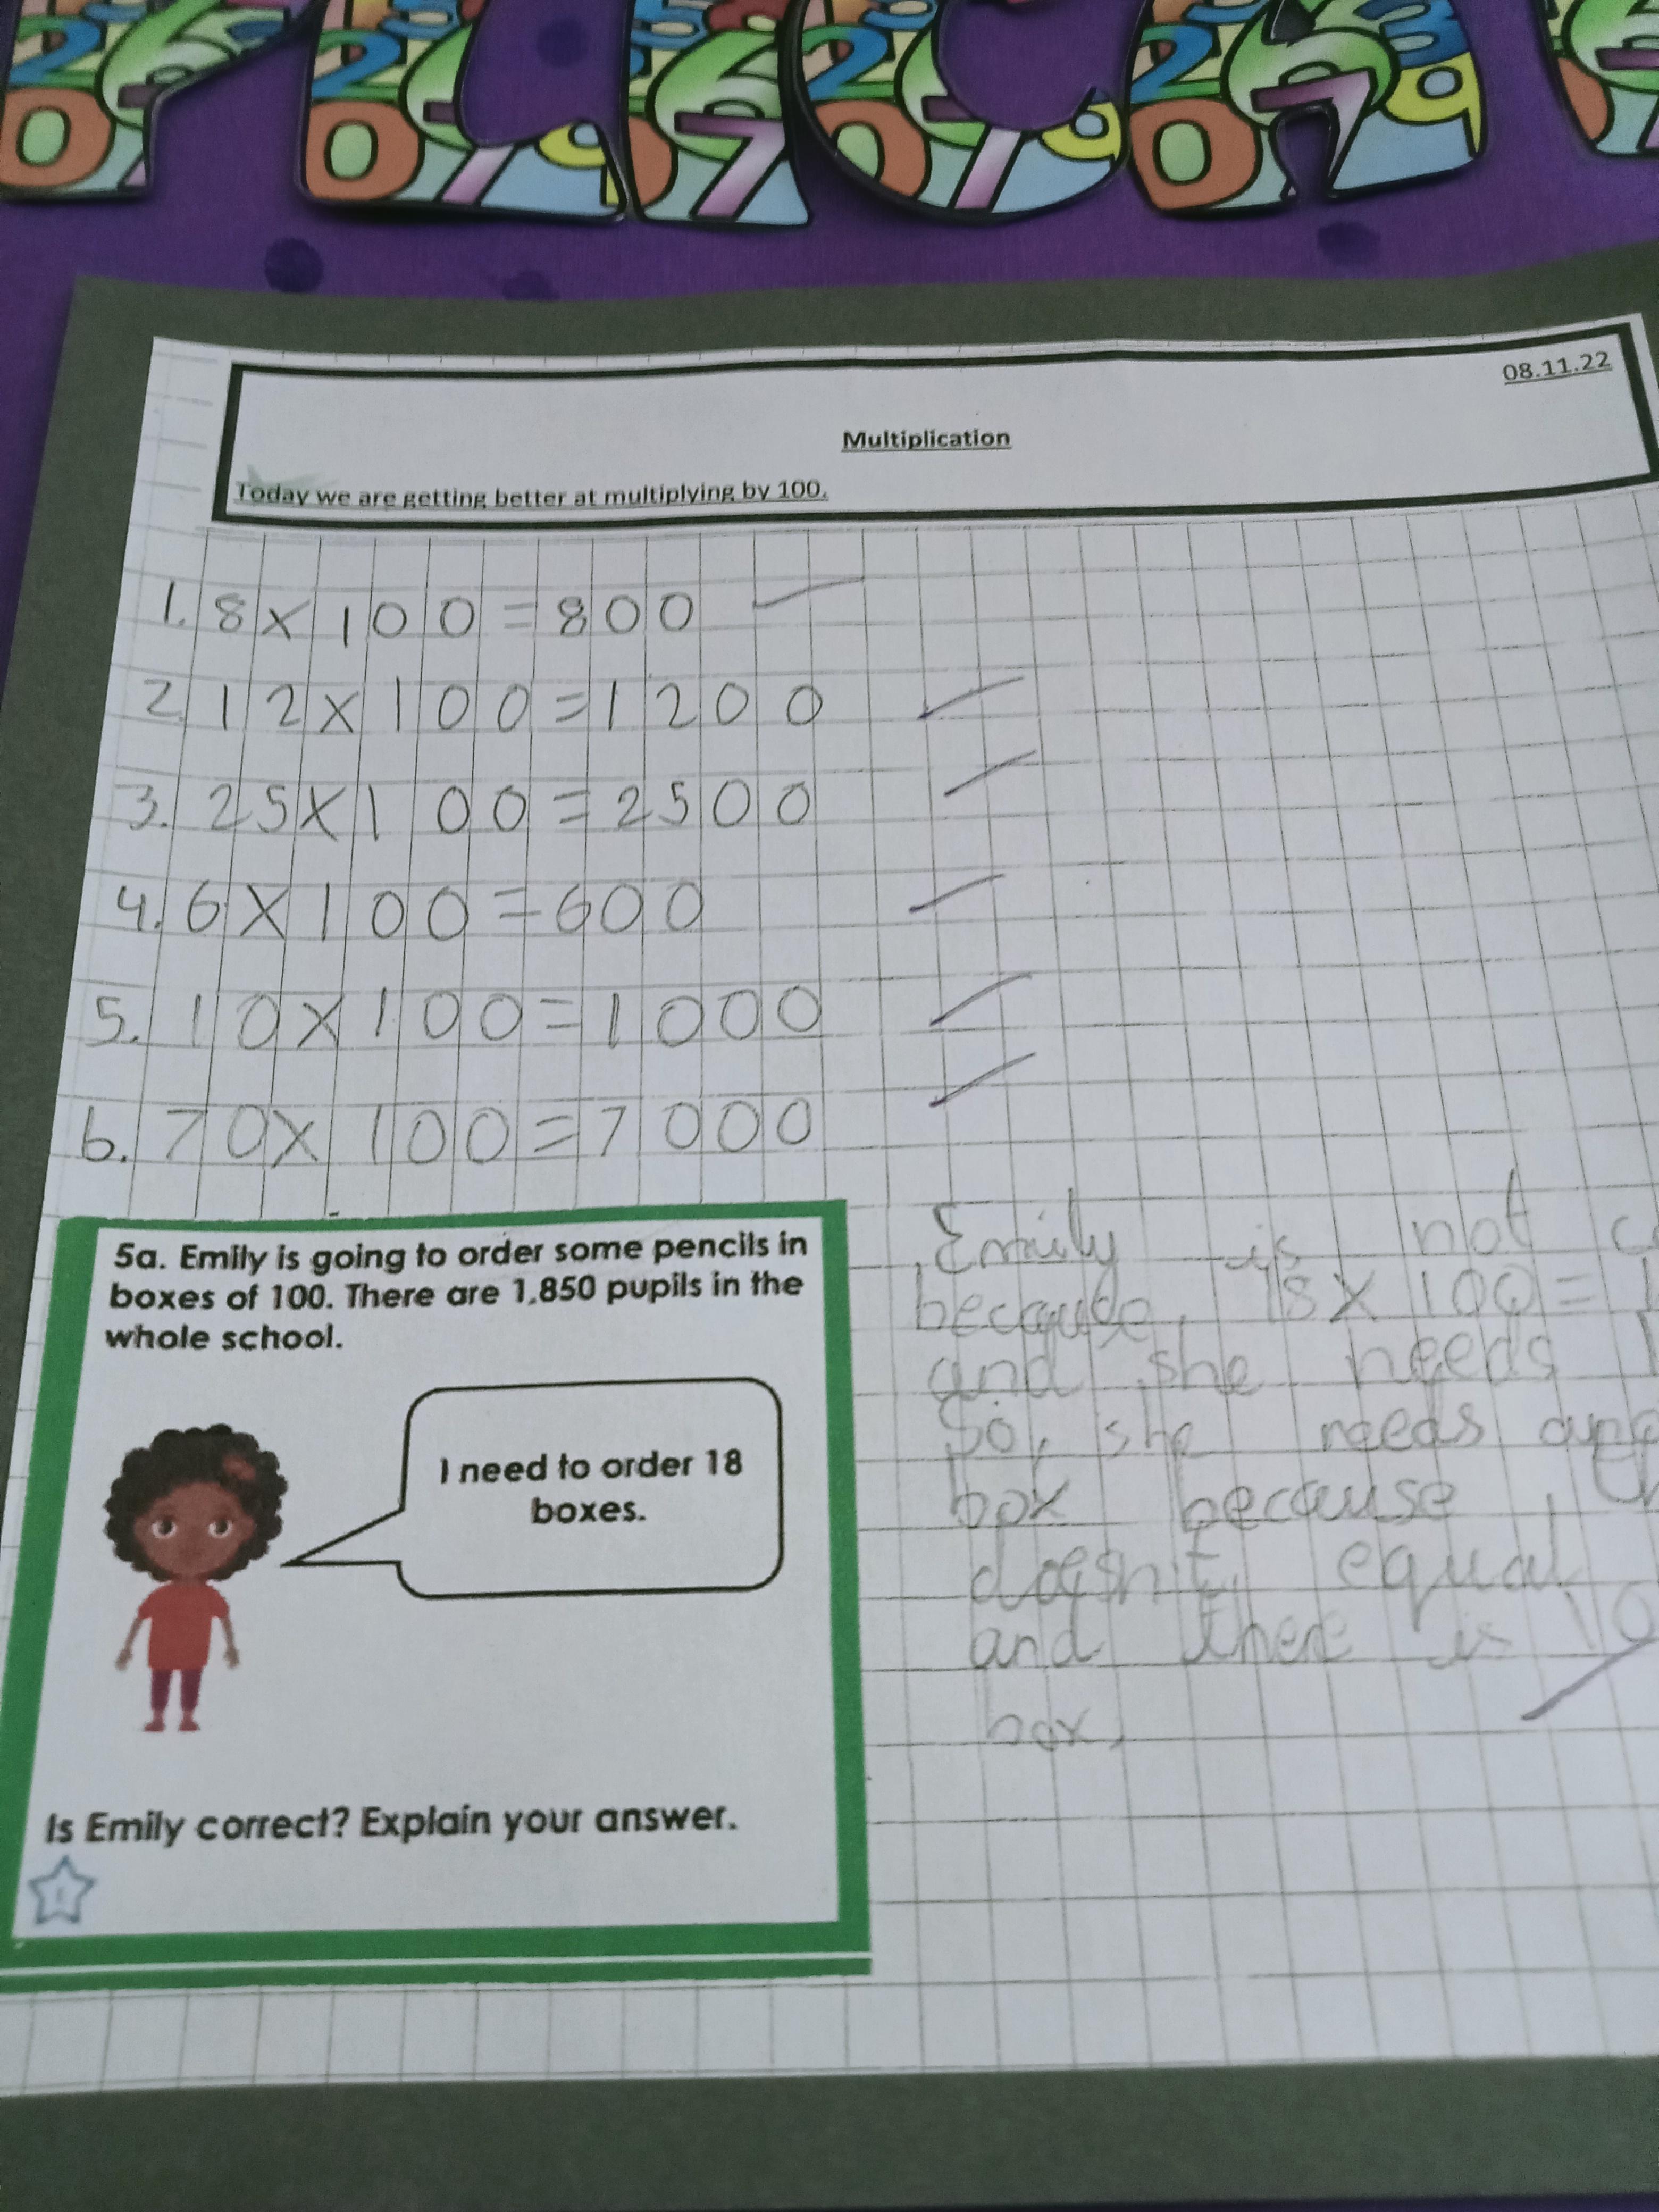 08.11.22
Multiplication
Today we are getting better at multiplying by 100.
1. 8 x 100 = 800
2. 12 x 100 = 1200
3. 25 x 100 = 2500
4. 6 x 100 = 600
5. 10 x 100 = 1000
6. 70 x 100 = 7000
5a. Emily is going to order some pencils in
boxes of 100. There are 1,850 pupils in the
whole school.
I need to order 18
boxes.
Is Emily correct? Explain your answer.
Emily is not
because, 18 x 100 =
and she needs
So, she needs
box because,
doesn't equal
and there is
box,